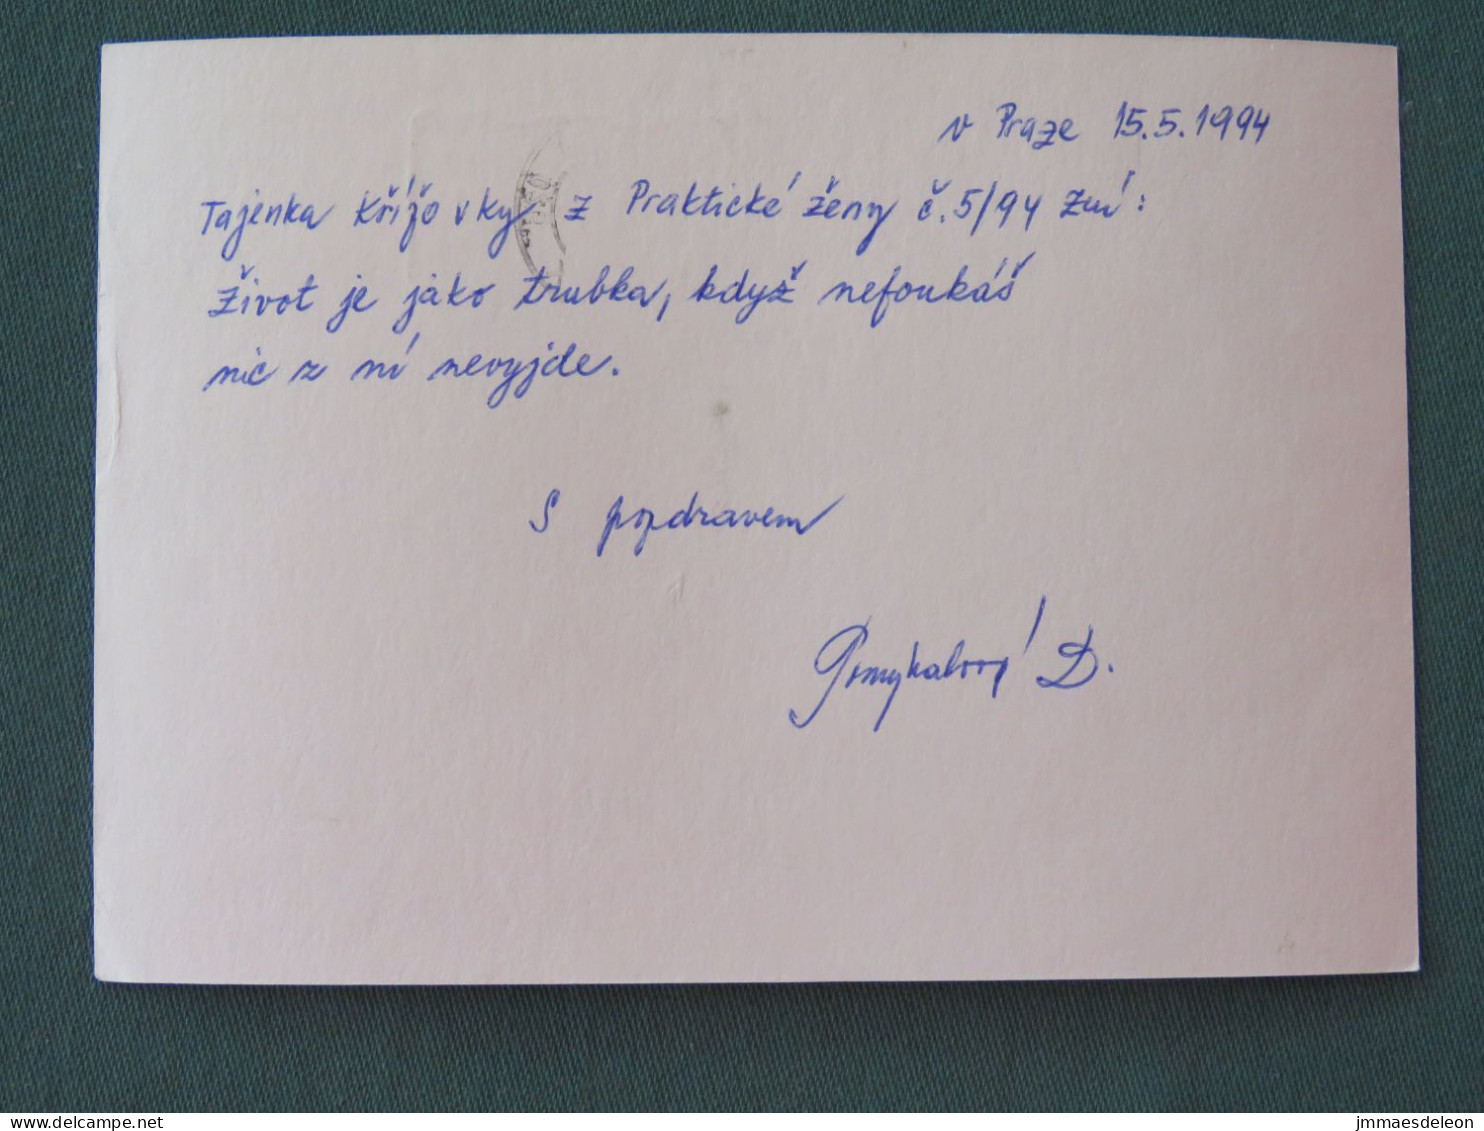 v Praze 15.5.1994
Tajenka křížovky z Praktické ženy č.5/94 zní:
Život je jako trubka, když nefoukáš
nic z ní nevyjde.
S pozdravem
Pomykalová D.
www.delcampe.net
jmmaesdeleon